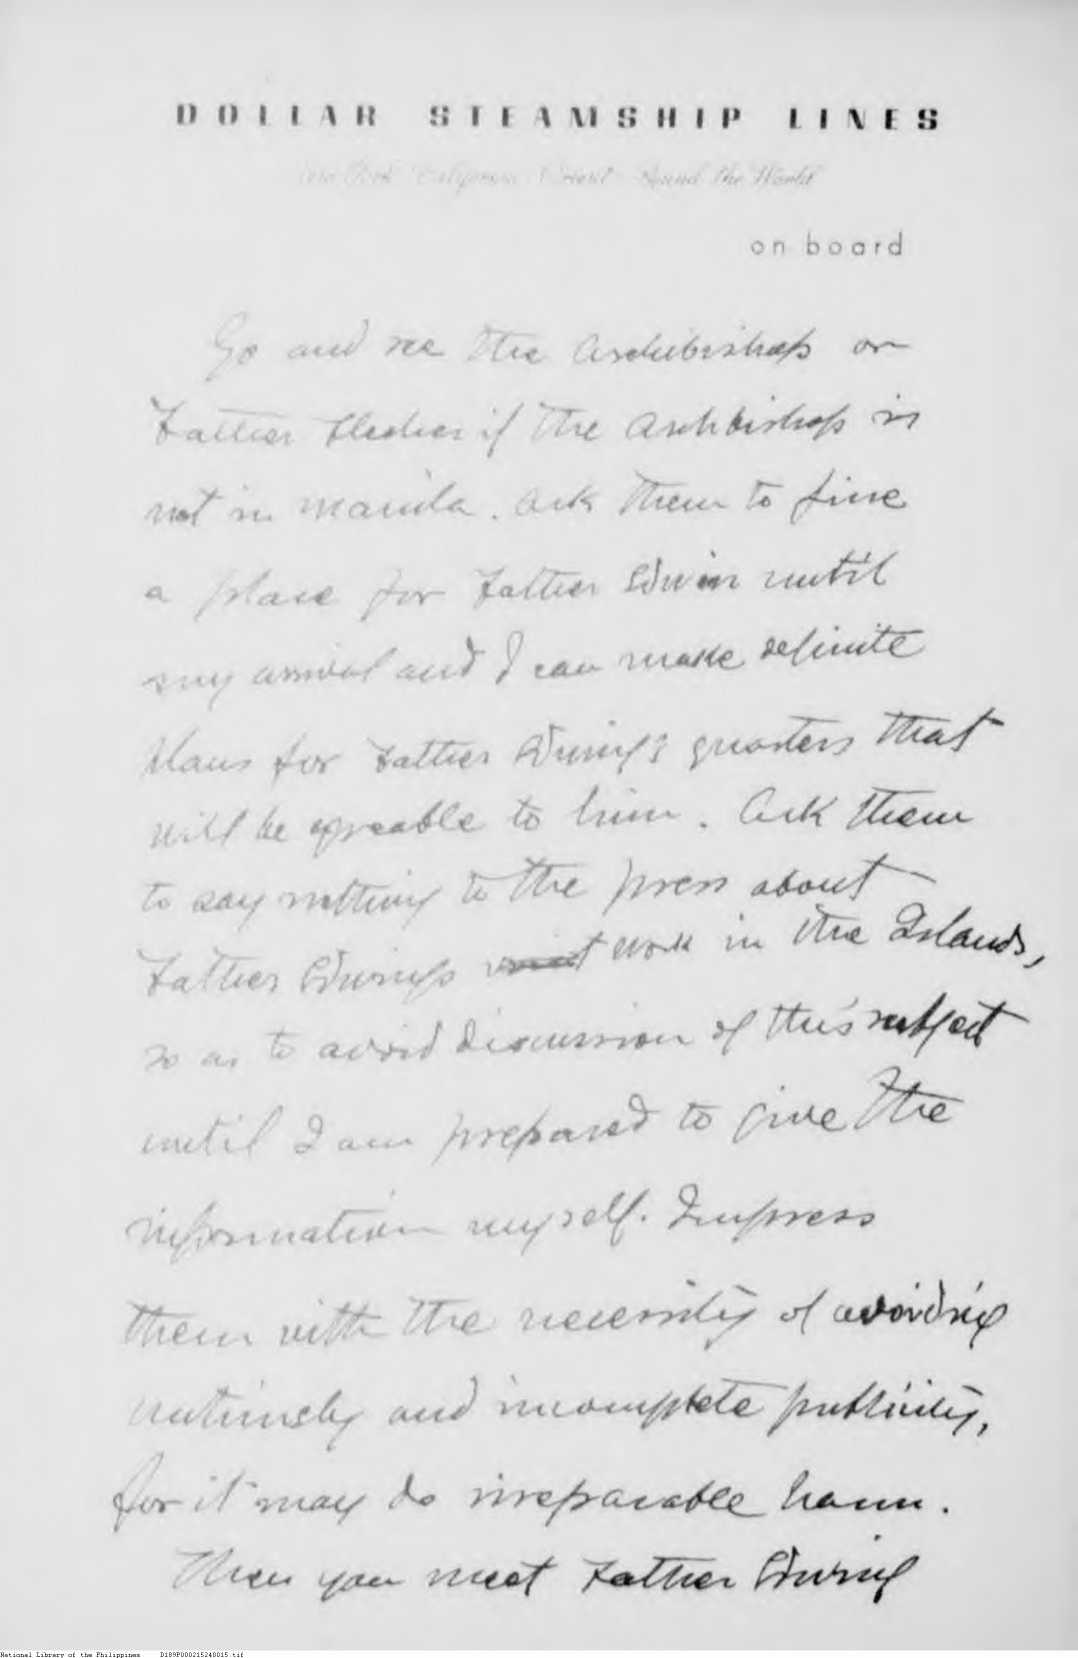 DOLLAR STEAMSHIP LINES
New York California Orient Round the World
on board
Go and see the Archbishop or
Father if the Archbishop is
not in Manila. Ask them to fine
a place for Father Edwin until
my arrival and I can make definite
plans for Father quarters that
will be agreable to him. Ask them
to say nothing to the press about
Father work in the Islands,
so as to avoid discussion of this subject
until I am prepared to give the
information myself. Impress
them with the necessity of avoiding
untimely and incomplete publicity,
for it may do irreparable harm.
Then you meet Father
National Library of the Philippines D189P000215240015.tif